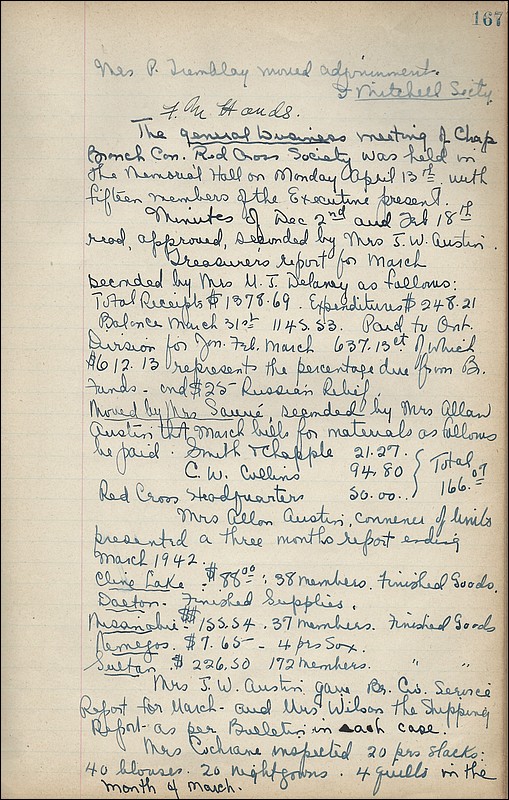 167
Mrs P. Tremblay moved adjournment.
Mitchell Secty.
F. M. Hands.
The general business meeting of Chap
Branch Can. Red Cross Society was held in
the Memorial Hall on Monday April 13th with
fifteen members of the Executive present.
Minutes of Dec 2nd and Feb 18th
read, approved, seconded by Mrs J. W. Austin.
Treasurers report for March
seconded by Mrs M. J. Delaney as follows:
Total Receipts $1378.69. Expenditures $248.21
Balance March 31st 1145.53. Paid to Ont.
Division for Jan. Feb. March 637.13ct of which
$612.13 represents the percentage due from Br.
Funds - and $25- Russian Relief.
Moved by Mrs, seconded by Mrs Allan
Austin that March bills for materials as follows
be paid. Smith & Chapple 21.27.
C. W. Collins 94.80 } Total
Red Cross Headquarters 50.00.. 166.07
Mrs Allan Austin, convener of Units
presented a three months report ending
March 1942.
Cline Lake - $88.00: 38 members. Finished Goods.
Dalton - Finished Supplies.
Missanabie: $155.54. 37 members. Finished Goods
Nemegos. $7.65 - 4 prs Sox.
Sultan. $226.50 172 members. " "
Mrs J. W. Austin gave Br. Civ. Service
Report for March - and Mrs Wilson the Shipping
Report - as per Bulletin in each case.
Mrs Cochrane inspected 20 prs slacks:
40 blouses. 20 nightgowns. 4 quilts in the
month of March.